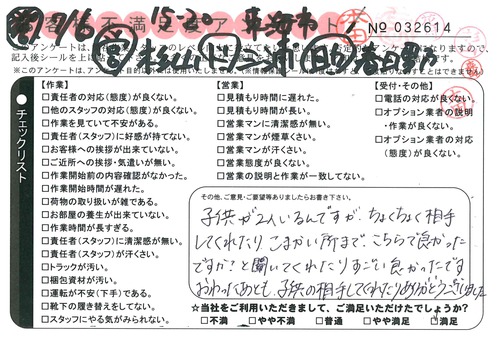 客様不満足度アンケート
7/6 15-20 東海市
No 032614
記入後シールを上に貼
【作業】
□責任者の対応(態度)が良くない。
□他のスタッフの対応(態度)が良くない。
□作業を見ていて不安がある。
□責任者(スタッフ)に好感が持てない。
□お客様への挨拶が出来ていない。
□ご近所への挨拶・気遣いが無い。
□作業開始前の内容確認がなかった。
□作業開始時間が遅れた。
□荷物の取り扱いが雑である。
□お部屋の養生が出来ていない。
□作業時間が長すぎる。
□責任者(スタッフ)に清潔感が無い。
□責任者(スタッフ)が汗くさい。
□トラックが汚い。
□梱包資材が汚い。
□運転が不安(下手)である。
□靴下の履き替えをしてない。
□スタッフにやる気がみられない。
【営業】
□見積もり時間に遅れた。
□見積もり時間が長い。
□営業マンに清潔感が無い。
□営業マンが煙草くさい。
□営業マンが汗くさい。
□営業態度が良くない。
□営業の説明と作業が一致してない。
【受付・その他】
□電話の対応が良くない。
□オプション業者の説明
・作業が良くない。
□オプション業者の対応
(態度)が良くない。
チェックリスト
その他、ご意見・ご要望等ありましたらお書き下さい。
子供が2人いるんですが、ちょくちょく相手
してくれたり こまかい所まで、こちらで良かった
ですか?と聞いてくれたりすごい良かったです
おわったあとも、子供の相手してくれたりありがとうございました
☆当社をご利用いただきまして、ご満足いただけたでしょうか?
□不満 □やや不満 □普通 □やや満足 □満足